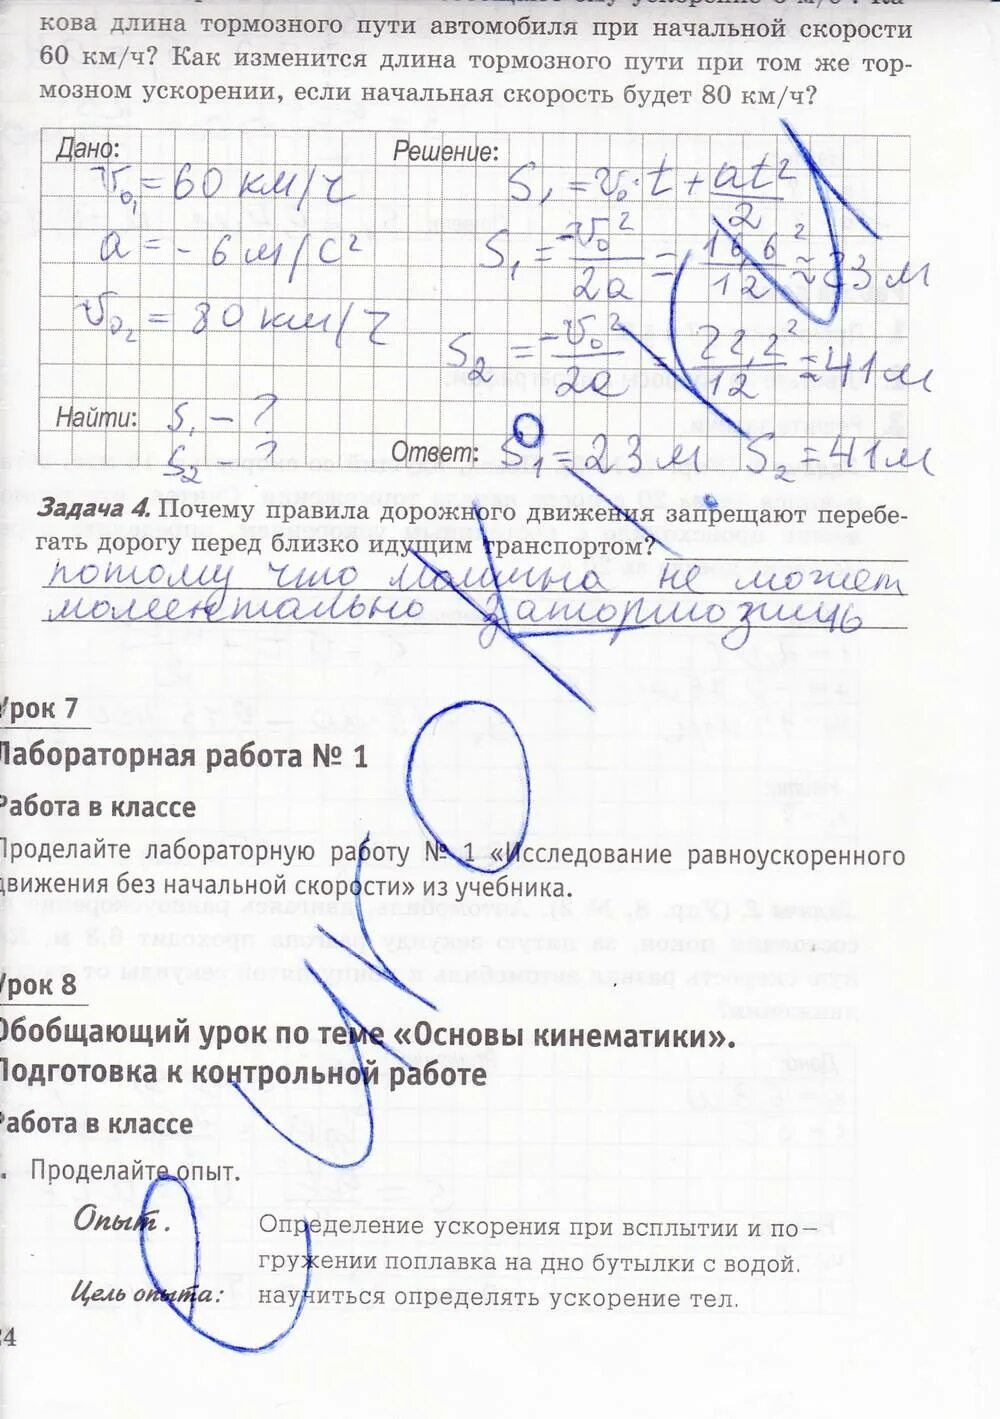 кова длина тормозного пути автомобиля при начальной скорости
60 км/ч? Как изменится длина тормозного пути при том же тор-
мозном ускорении, если начальная скорость будет 80 км/ч?
Дано: Решение:
v₀₁ = 60 км/ч S₁ = v₀·t + at²/2
a = - 6 м/с² S₁ = -v₀²/2a = 16,6²/12 ≈ 23 м
v₀₂ = 80 км/ч S₂ = -v₀²/2a = 22,2²/12 = 41 м
Найти: S₁ - ?
S₂ - ? Ответ: S₁ = 23 м S₂ = 41 м
Задача 4. Почему правила дорожного движения запрещают перебе-
гать дорогу перед близко идущим транспортом?
потому что машина не может
моментально затормозить
Урок 7
Лабораторная работа № 1
Работа в классе
Проделайте лабораторную работу № 1 «Исследование равноускоренного
движения без начальной скорости» из учебника.
Урок 8
Обобщающий урок по теме «Основы кинематики».
Подготовка к контрольной работе
Работа в классе
Проделайте опыт.
Опыт. Определение ускорения при всплытии и по-
гружении поплавка на дно бутылки с водой.
Цель опыта: научиться определять ускорение тел.
24